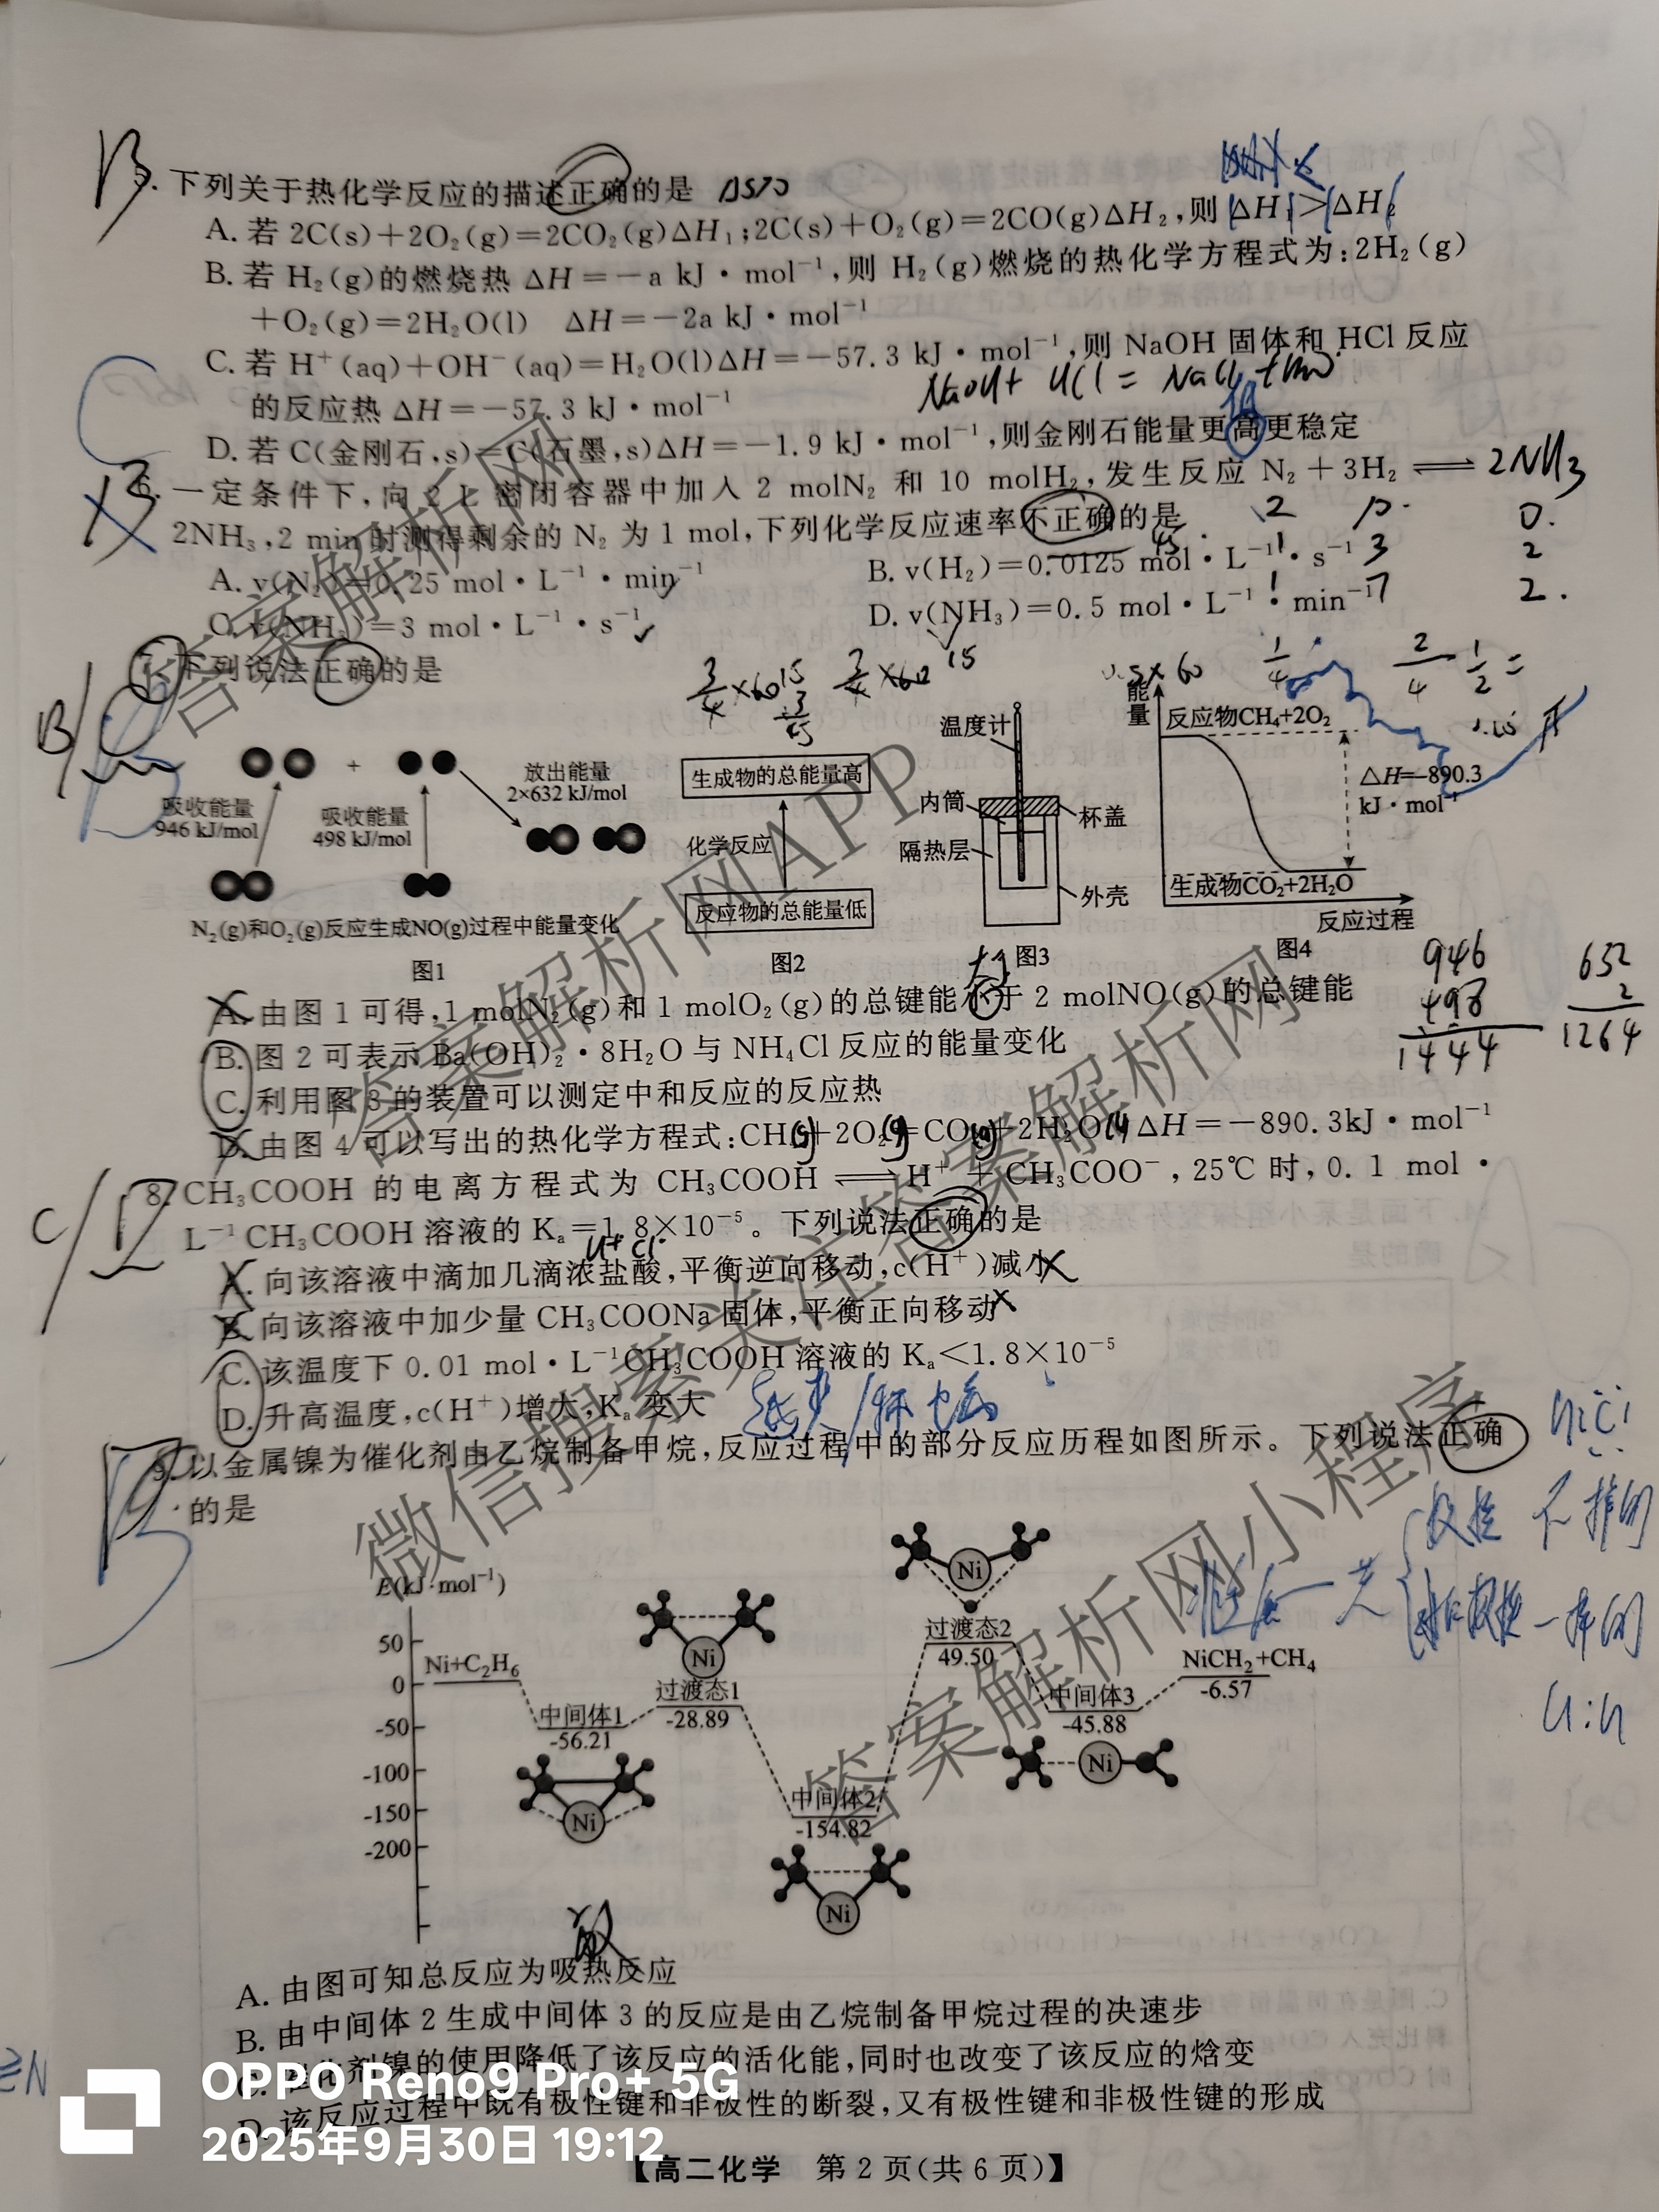 下列关于热化学反应的描述正确的是 ΔS>0
A. 若 2C(s)+2O₂(g)=2CO₂(g)ΔH₁;2C(s)+O₂(g)=2CO(g)ΔH₂,则|ΔH₁|>|ΔH₂|
B. 若 H₂(g)的燃烧热 ΔH=-a kJ·mol⁻¹,则 H₂(g)燃烧的热化学方程式为:2H₂(g)
+O₂(g)=2H₂O(l) ΔH=-2a kJ·mol⁻¹
C. 若 H⁺(aq)+OH⁻(aq)=H₂O(l)ΔH=-57.3 kJ·mol⁻¹,则 NaOH 固体和 HCl 反应
的反应热 ΔH=-57.3 kJ·mol⁻¹
D. 若 C(金刚石,s)=C(石墨,s)ΔH=-1.9 kJ·mol⁻¹,则金刚石能量更高更稳定
6. 一定条件下,向 2 L 密闭容器中加入 2 molN₂ 和 10 molH₂,发生反应 N₂+3H₂⇌ 2NH₃
2NH₃,2 min 时测得剩余的 N₂ 为 1 mol,下列化学反应速率不正确的是
A. v(N₂)=0.25 mol·L⁻¹·min⁻¹
B. v(H₂)=0.0125 mol·L⁻¹·s⁻¹
C. v(NH₃)=3 mol·L⁻¹·s⁻¹
D. v(NH₃)=0.5 mol·L⁻¹·min⁻¹
7. 下列说法正确的是
吸收能量
946 kJ/mol
吸收能量
498 kJ/mol
放出能量
2×632 kJ/mol
N₂(g)和O₂(g)反应生成NO(g)过程中能量变化
图1
生成物的总能量高
化学反应
反应物的总能量低
图2
温度计
内筒
杯盖
隔热层
外壳
图3
能量
反应物CH₄+2O₂
ΔH=-890.3
kJ·mol⁻¹
生成物CO₂+2H₂O
反应过程
图4
946
498
1444
632
2
1264
A. 由图 1 可得,1 molN₂(g)和 1 molO₂(g)的总键能小于 2 molNO(g)的总键能
B. 图 2 可表示 Ba(OH)₂·8H₂O 与 NH₄Cl 反应的能量变化
C. 利用图 3 的装置可以测定中和反应的反应热
D. 由图 4 可以写出的热化学方程式:CH₄(g)+2O₂(g)=CO₂(g)+2H₂O(l) ΔH=-890.3kJ·mol⁻¹
8. CH₃COOH 的电离方程式为 CH₃COOH⇌H⁺+CH₃COO⁻,25℃ 时,0.1 mol·
L⁻¹ CH₃COOH 溶液的 Kₐ=1.8×10⁻⁵。下列说法正确的是
A. 向该溶液中滴加几滴浓盐酸,平衡逆向移动,c(H⁺)减小
B. 向该溶液中加少量 CH₃COONa 固体,平衡正向移动
C. 该温度下 0.01 mol·L⁻¹CH₃COOH 溶液的 Kₐ<1.8×10⁻⁵
D. 升高温度,c(H⁺)增大,Kₐ 变大
9. 以金属镍为催化剂由乙烷制备甲烷,反应过程中的部分反应历程如图所示。下列说法正确
的是
E(kJ·mol⁻¹)
50
0
-50
-100
-150
-200
Ni+C₂H₆
中间体1
-56.21
Ni
过渡态1
-28.89
Ni
中间体2
-154.82
Ni
过渡态2
49.50
Ni
中间体3
-45.88
Ni
NiCH₂+CH₄
-6.57
A. 由图可知总反应为吸热反应
B. 由中间体 2 生成中间体 3 的反应是由乙烷制备甲烷过程的决速步
C. 催化剂镍的使用降低了该反应的活化能,同时也改变了该反应的焓变
D. 该反应过程中既有极性键和非极性的断裂,又有极性键和非极性键的形成
【高二化学 第 2 页(共 6 页)】
答案解析网
答案解析网APP
微信搜索关注答案解析网
答案解析网小程序
OPPO Reno9 Pro+ 5G
2025年9月30日 19:12